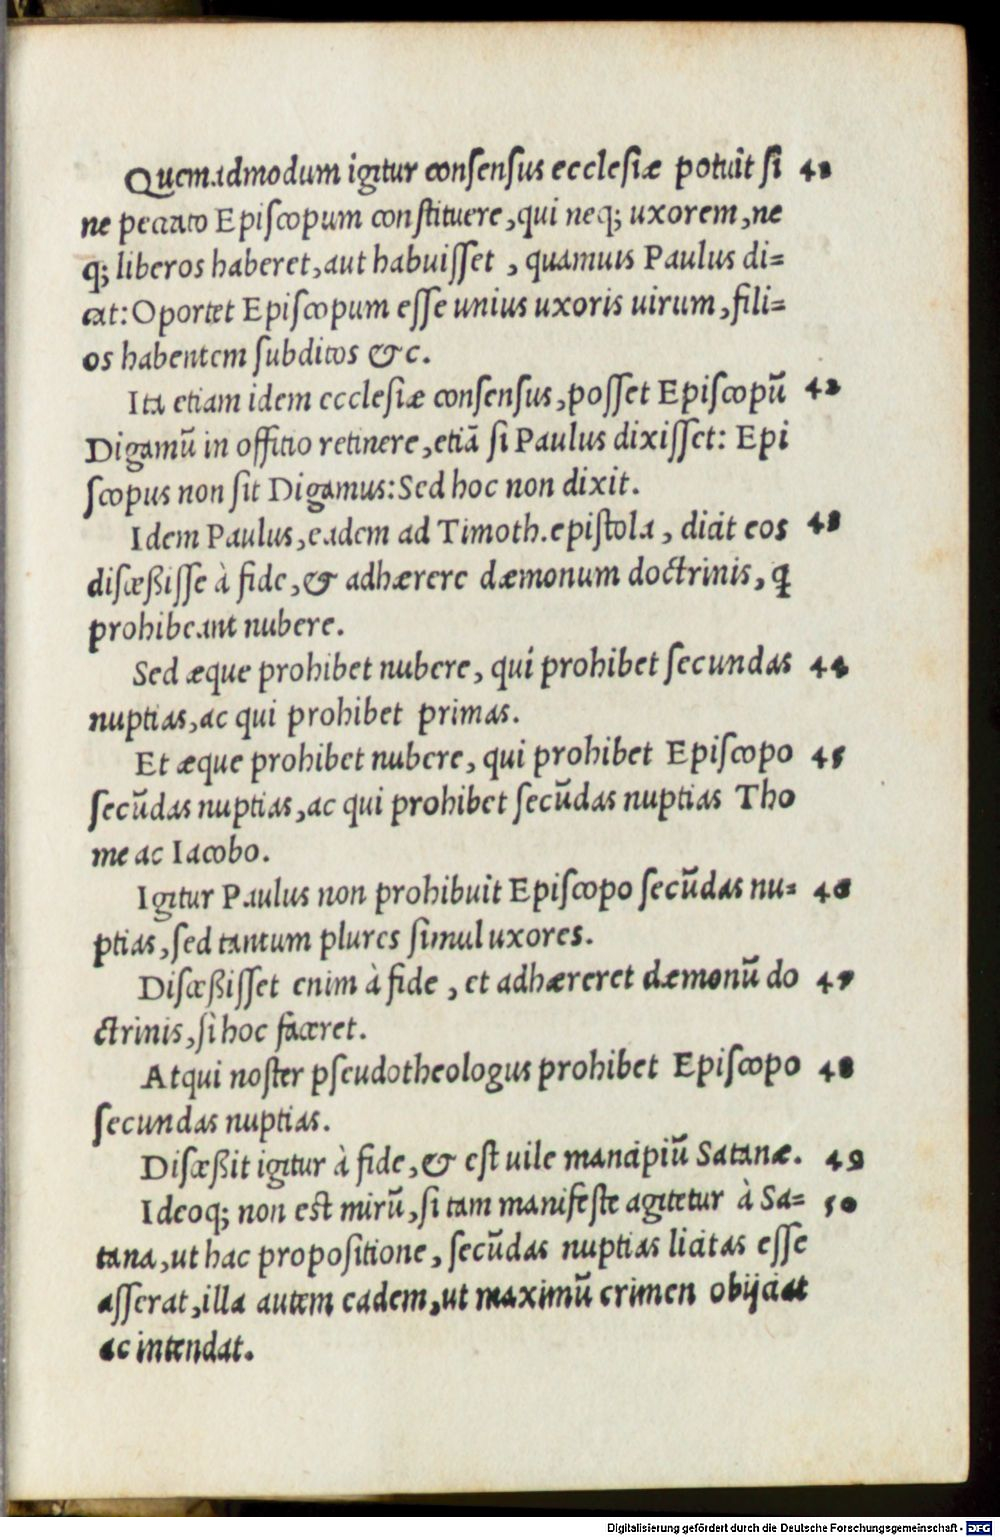 Quemadmodum igitur consensus ecclesiæ potuit si 41
ne peccato Episcopum constituere, qui neq; uxorem, ne
q; liberos haberet, aut habuisset , quamuis Paulus di=
cat: Oportet Episcopum esse unius uxoris uirum, fili=
os habentem subditos &c.
Ita etiam idem ecclesiæ consensus, posset Episcopū 42
Digamū in offitio retinere, etiā si Paulus dixisset: Epi
scopus non sit Digamus: Sed hoc non dixit.
Idem Paulus, eadem ad Timoth. epistola, dicit eos 43
discęßisse à fide, & adhærere dæmonum doctrinis, q
prohibeant nubere.
Sed æque prohibet nubere, qui prohibet secundas 44
nuptias, ac qui prohibet primas.
Et æque prohibet nubere, qui prohibet Episcopo 45
secūdas nuptias, ac qui prohibet secūdas nuptias Tho
me ac Iacobo.
Igitur Paulus non prohibuit Episcopo secūdas nu= 46
ptias, sed tantum plures simul uxores.
Disceßisset enim à fide, et adhæreret dæmonū do 47
ctrinis, si hoc faceret.
Atqui noster pseudotheologus prohibet Episcopo 48
secundas nuptias.
Disceßit igitur à fide, & est uile mancipiū Satanæ. 49
Ideoq; non est mirū, si tam manifeste agitetur à Sa= 50
tana, ut hac propositione, secūdas nuptias licitas esse
asserat, illa autem eadem, ut maximū crimen obijciat
ac intendat.
Digitalisierung gefördert durch die Deutsche Forschungsgemeinschaft - DFG